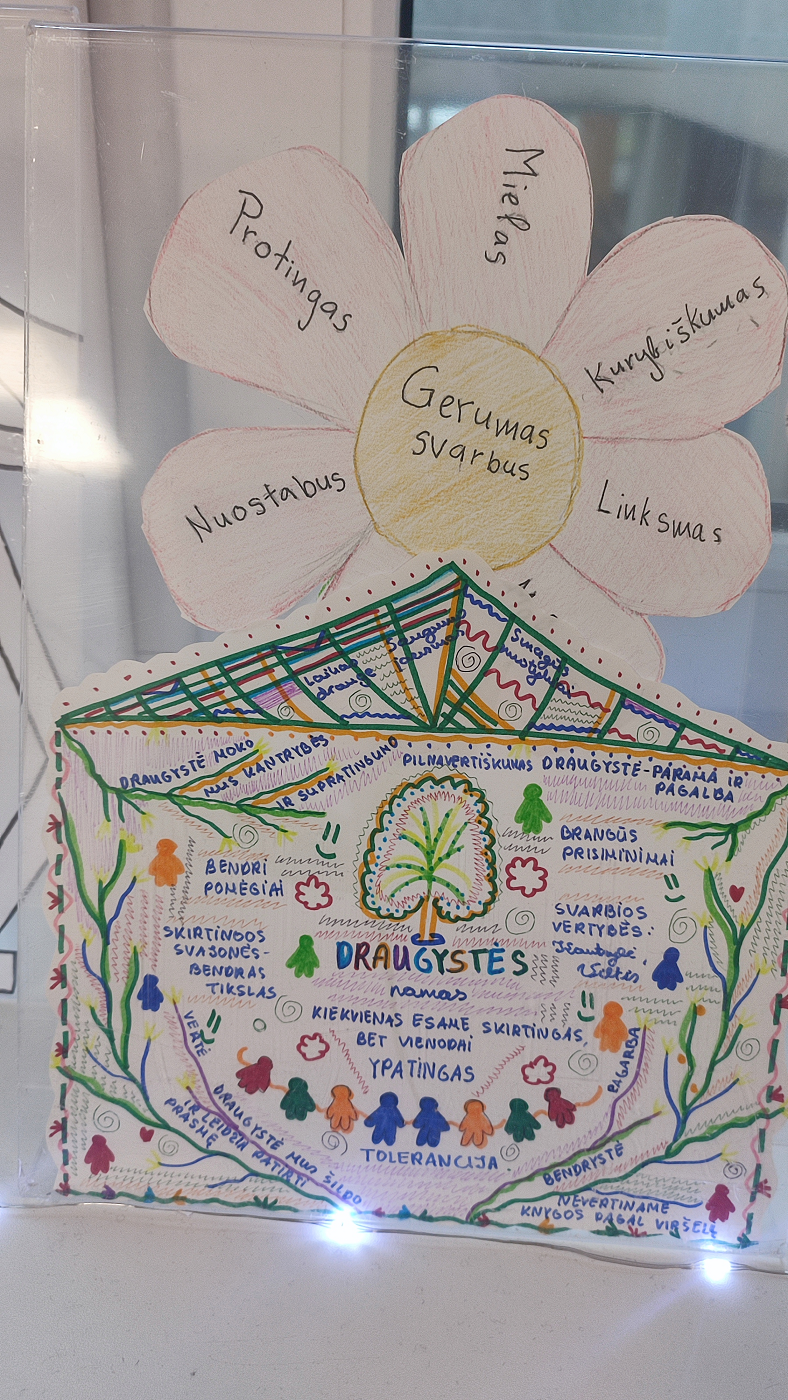 Mielas
Protingas
Kurybiškumas
Gerumas
svarbus
Nuostabus
Linksmas
Laikas
drauge
Smagus
DRAUGYSTĖ MOKO
MUS KANTRYBĖS
IR SUPRATINGUMO
PILNAVERTIŠKUMAS
DRAUGYSTĖ-PARAMA IR
PAGALBA
BENDRI
POMĖGIAI
BRANGŪS
PRISIMINIMAI
SKIRTINGOS
SVAJONĖS-
BENDRAS
TIKSLAS
SVARBIOS
VERTYBĖS:
DRAUGYSTĖS
namas
KIEKVIENAS ESAME SKIRTINGAS,
BET VIENODAI
YPATINGAS
VERTĖ
PAGARBA
DRAUGYSTĖ MUS ŠILDO
IR LEIDŽIA PATIRTI
PRASMĘ
TOLERANCIJA
BENDRYSTĖ
NEVERTINAME
KNYGOS PAGAL VIRŠELĮ